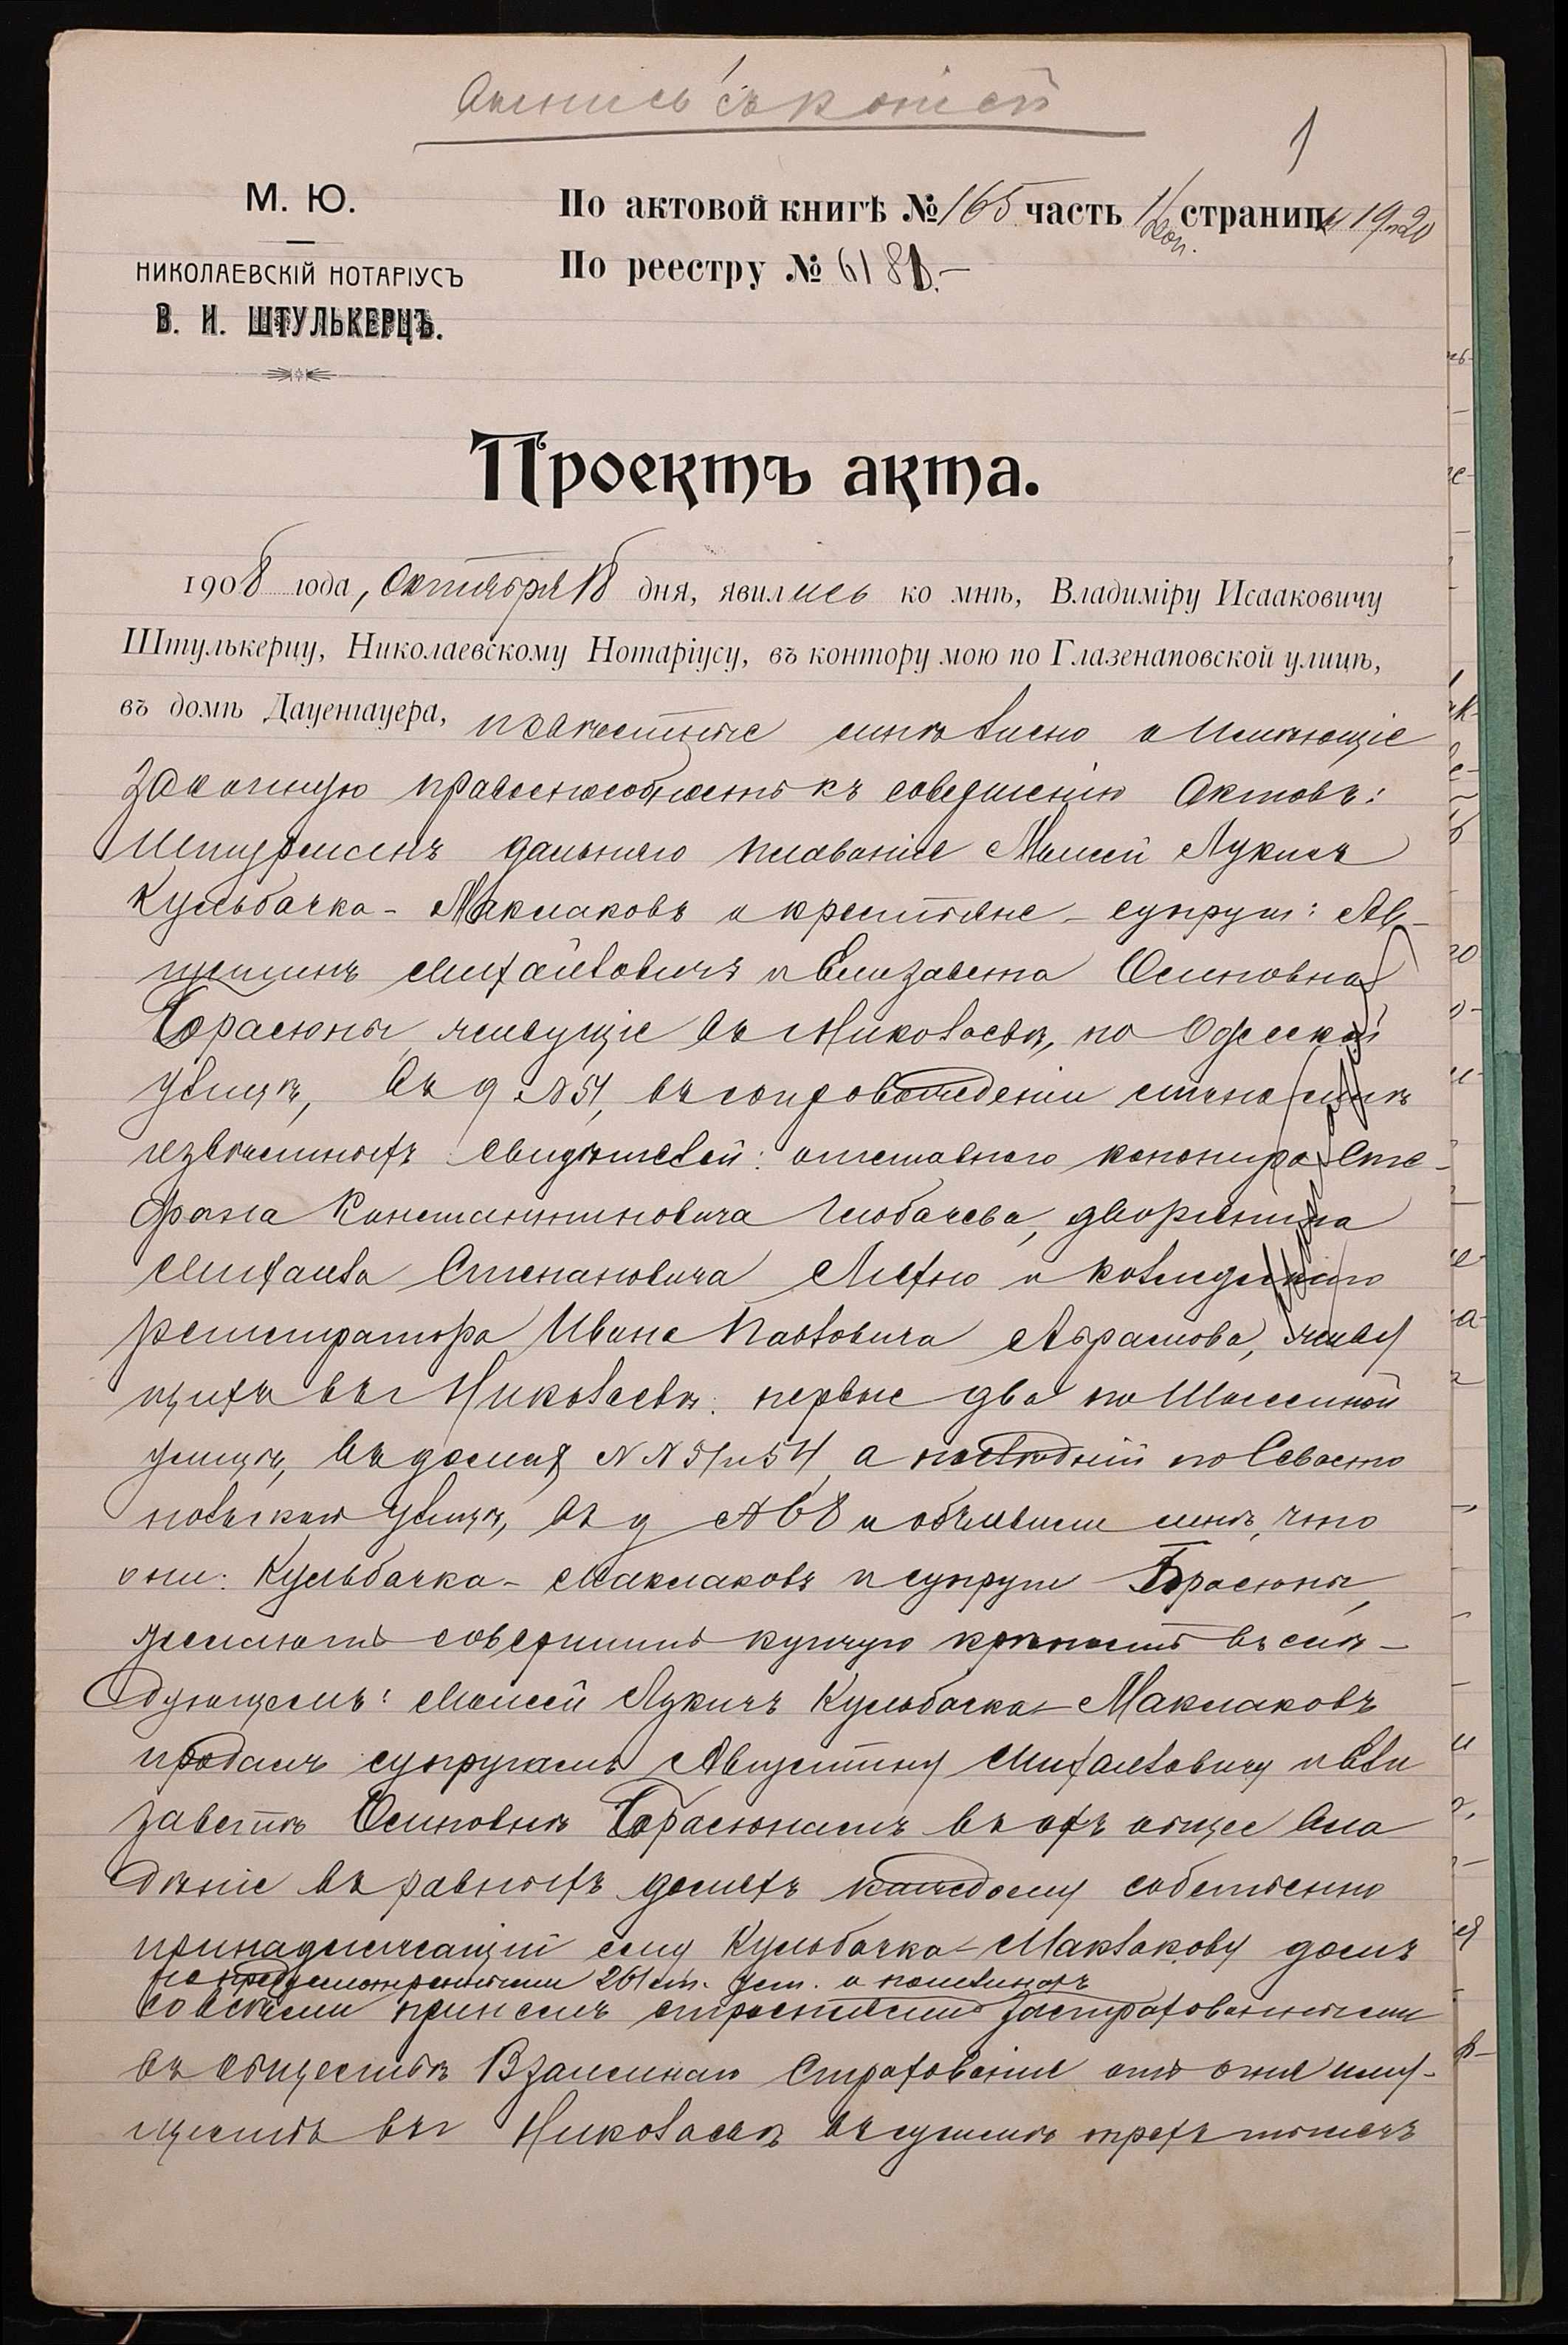 съ копіей
1
М. Ю.
НИКОЛАЕВСКІЙ НОТАРІУСЪ
В. И. ШТУЛЬКЕРЦЪ.
По актовой книгѣ № 165 часть 1/доп. страницы 19-20
По реестру № 6181.-
Проектъ акта.
1908 года, Октября 18 дня, явились ко мнѣ, Владиміру Исааковичу
Штулькерцу, Николаевскому Нотаріусу, въ контору мою по Глазенаповской улицѣ,
въ домѣ Дауенгауера, извѣстные мнѣ лично и имѣющіе
законную правоспособность къ совершенію актовъ:
Штурманъ дальняго плаванія Моисей Лукичъ
Кульбачка-Маклаковъ и крестьяне-супруги: Ав-
густинъ Михайловичъ и Елизавета Осиповна
Брасюны, живущіе въ Николаевѣ, по Одесской
улицѣ, въ д №51, въ сопровожденіи мнѣ
извѣстныхъ свидѣтелей: отставного канонира Сте-
фана Константиновича Глобачева, дворянина
Михаила Степановича Лихно и коллежскаго
регистратора Ивана Павловича Абрамова, живу
щихъ въ г Николаевѣ: первые два по Шоссейной
улицѣ, въ домахъ №№ 51 и 54, а послѣдній по Севасто
польской улицѣ, въ д №68 и объявили мнѣ, что
они: Кульбачка-Маклаковъ и супруги Брасюны,
желаютъ совершить купчую крѣпость въ слѣ-
дующемъ: Моисей Лукичъ Кульбачка-Маклаковъ
продалъ супругамъ Августину Михайловичу и Ели
заветѣ Осиповнѣ Брасюнамъ въ ихъ общее вла
дѣніе въ равныхъ доляхъ каждому собственно
принадлежащій ему Кульбачка-Маклакову домъ
не предусмотрѣнными 261 ст. уст. о пошлинахъ
со всѣми при немъ строеніями застрахованными
въ обществѣ Взаимнаго Страхованія отъ огня иму-
ществъ въ г Николаевѣ въ суммѣ трехъ тысячъ